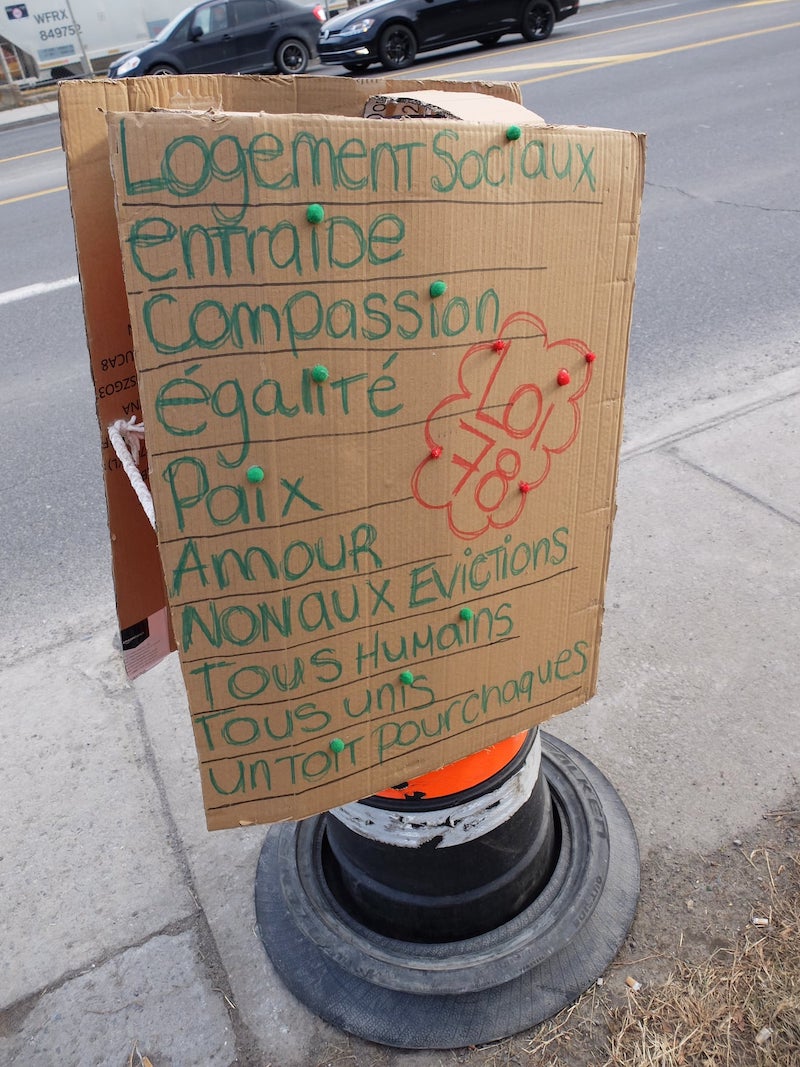 WFRX
849752
Logement Sociaux
entraide
Compassion
égalité
Paix
Amour
Non aux Evictions
Tous Humains
Tous unis
un toit pour chaques
Loi
78